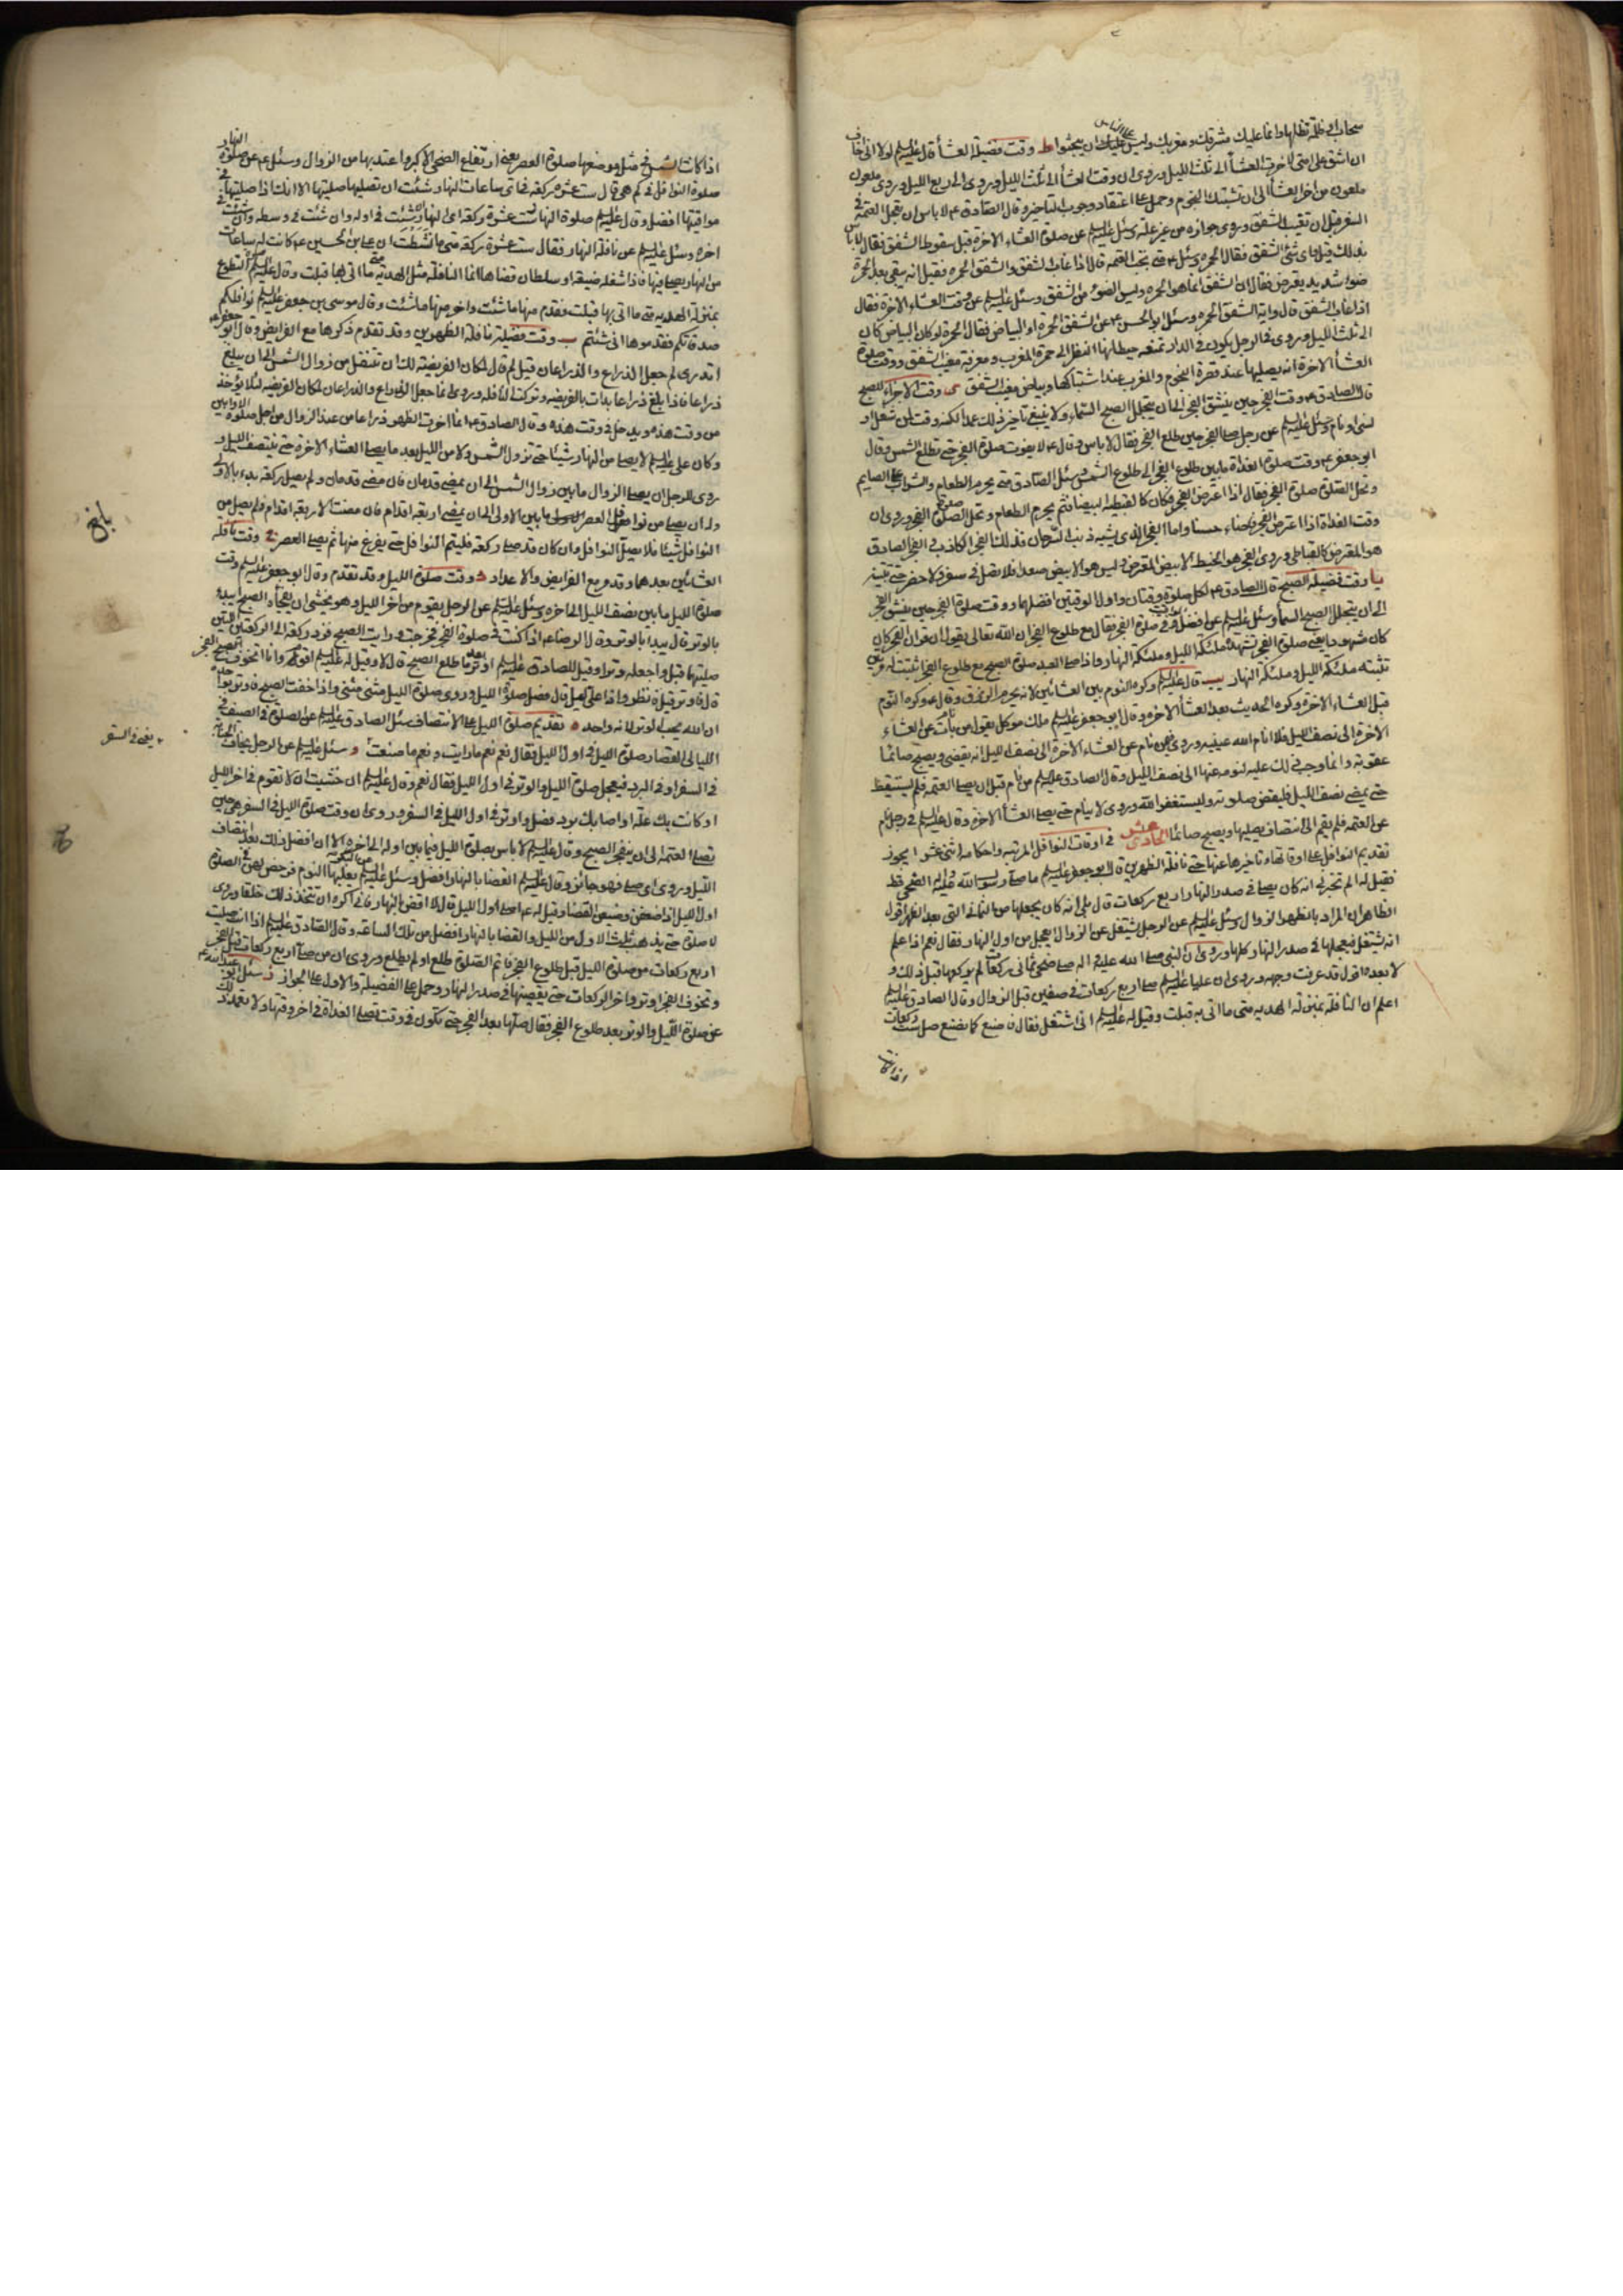 سحاب او ظلمة تظلها وانما عليك مشرقك ومغربك وليس على الناس ان يبحثوا ط وقت فضيلة العشا قال عليه السلم لولا انى اخاف
ان اشق على امتى لاخرت العشا الى ثلث الليل وروى ان وقت العشا الى ثلث الليل وروى الى ربع الليل وروى ملعون
ملعون من اخر العشا الى ان تشتبك النجوم وحمل على اعتقاد وجوب التاخير وقال الصادق ع لا باس ان تعجل العتمة فى
السفر قبل ان تغيب الشفق وروى جوازه من غير علة وسئل عليه السلم عن صلوة العشاء الاخرة قبل سقوط الشفق فقال لا باس
بذلك قيل فاى شئ الشفق فقال الحمرة وسئل ع متى تجب العتمة قال اذا غاب الشفق والشفق الحمرة فقيل انه يبقى بعد الحمرة
ضوء شديد يعترض فقال ان الشفق انما هو الحمرة وليس الضوء من الشفق وسئل عليه السلم عن وقت العشاء الاخرة فقال
اذا غاب الشفق قال واية الشفق الحمرة وسئل ابو الحسن ع عن الشفق الحمرة او البياض فقال الحمرة لو كان البياض كان
الى ثلث الليل وروى فى الرجل يكون فى الدار تمنعه حيطانها النظر الى حمرة المغرب ومعرفة مغيب الشفق ووقت صلوة
العشا الاخرة انه يصليها عند قصرة النجوم والمغرب عند اشتباكها وبياض مغيب الشفق ى وقت الاجزاء للصبح
قال الصادق ع وقت الفجر حين ينشق الفجر الى ان يتجلل الصبح السماء ولا ينبغى تاخير ذلك عمدا لكنه وقت لمن شغل او
نسى او نام وسئل عليه السلم عن رجل صلى الفجر حين طلع الفجر فقال لا باس وقال ع لا يفوت صلوة الفجر حتى تطلع الشمس وقال
ابو جعفر ع وقت صلوة الغداة ما بين طلوع الفجر الى طلوع الشمس وسئل الصادق متى يحرم الطعام والشراب على الصايم
وتحل الصلوة صلوة الفجر فقال اذا اعترض الفجر فكان كالقبطية البيضاء فثم يحرم الطعام وتحل الصلوة صلوة الفجر وروى ان
وقت الغداة اذا اعترض الفجر فاضاء حسنا واما الفجر الذى يشبه ذنب السرحان فذلك الفجر الكاذب والفجر الصادق
هو المعترض كالقباطى وروى الفجر هو الخيط الابيض المعترض وليس هو الابيض صعدا فلا تصل فى سفر ولا حضر حتى تتبينه
يا وقت فضيلة الصبح قال الصادق ع لكل صلوة وقتان واول الوقتين افضلهما ووقت صلوة الفجر حين ينشق الفجر
الى ان يتجلل الصبح السماء وسئل عليه السلم عن افضل وقت فى صلوة الفجر فقال مع طلوع الفجر ان الله تعالى يقول ان قران الفجر كان
كان مشهودا يعنى صلوة الفجر تشهده ملئكة الليل وملئكة النهار واذا صلى العبد صلوة الصبح مع طلوع الفجر اثبتت له مرتين
تثبته ملئكة الليل وملئكة النهار يب قال عليه السلم وكره النوم بين العشائين لانه يحرم الرزق وقال ع وكره النوم
قبل العشاء الاخرة وكره الحديث بعد العشا الاخرة وقال ابو جعفر عليه السلم ملك موكل يقول من بات عن العشاء
الاخرة الى نصف الليل فلا انام الله عينيه وروى فيمن نام عن العشاء الاخرة الى نصف الليل انه يقضى ويصبح صائما
عقوبة وانما وجب ذلك عليه لنومه عنها الى نصف الليل وقال الصادق عليه السلم من نام قبل ان يصلى العتمة فلم يستيقظ
حتى يمضى نصف الليل فليقض صلوته وليستغفر الله وروى لا ينام حتى يصلى العشا الاخرة وقال عليه السلم فى رجل نام
عن العتمة فلم يقم الى انتصاف يصليها ويصبح صائما الحادى عشر فى اوقات النوافل المرتبة واحكامه اثنى عشر ا يجوز
تقديم النوافل على اوقاتها وتاخيرها عنها حتى نافلة الظهرين قال ابو جعفر عليه السلم ما صلى رسول الله ص واله الضحى قط
فقيل له الم تخبرنى انه كان يصلى فى صدر النهار اربع ركعات قال بلى انه كان يجعلها من الثمان التى بعد الظهر اقول
الظاهر ان المراد بالظهر الزوال وسئل عليه السلم عن الرجل يشتغل عن الزوال ايعجل من اول النهار فقال نعم اذا علم
انه يشتغل فيعجلها فى صدر النهار كلها وروى ان النبى صلى الله عليه واله صلى ضحى ثمانى ركعات لم يركعها قبل ذلك و
لا بعده اقول قد عرفت وجهه وروى ان عليا عليه السلم صلى اربع ركعات فى صفين قبل الزوال وقال الصادق عليه السلم
اعلم ان النافلة بمنزلة الهدية متى ما اتى به قبلت وقيل له عليه السلم انى اشتغل فقال فاصنع كما نصنع صل ست ركعات
اذا كانت
اذا كانت الشمس فى مثل موضعها صلوة العصر يعنى ارتفاع الضحى الاكبر واعتد بها من الزوال وسئل ع عن صلوة النهار
صلوة النوافل فى كم هى قال ست عشرة ركعة فى اى ساعات النهار شئت ان تصليها صليتها الا انك اذا صليتها فى
مواقيتها افضل وقال عليه السلم صلوة النهار ست عشرة ركعة اى النهار شئت فى اوله وان شئت فى وسطه وان شئت فى
اخره وسئل عليه السلم عن نافلة النهار فقال ست عشرة ركعة متى ما نشطت ان على بن الحسين ع كانت له ساعات
من النهار يصلى فيها فاذا شغله ضيعة او سلطان قضاها انما النافلة مثل الهدية متى ما اتى بها قبلت وقال عليه السلم التطوع
بمنزلة الهدية متى ما اتى بها قبلت فقدم منها ما شئت واخر منها ما شئت وقال موسى بن جعفر عليه السلم نوافلكم
صدقاتكم فقدموها انى شئتم ب وقت فضيلة نافلة الظهرين وقد تقدم ذكرها مع الفرايض وقال ابو جعفر ع
اتدرى لم جعل الذراع والذراعان قيل لم قال لمكان الفريضة لك ان تتنفل من زوال الشمس الى ان يبلغ
ذراعا فاذا بلغ ذراعا بدات بالفريضة وتركت النافلة وروى انما جعل الذراع والذراعان لمكان الفريضة لئلا يؤخذ
من وقت هذه ويدخل فى وقت هذه وقال الصادق ع انما اخرت الظهر ذراعا من عند الزوال من اجل صلوة الاوابين
وكان على عليه السلم لا يصلى من النهار شيئا حتى تزول الشمس ولا من الليل بعد ما يصلى العشاء الاخرة حتى ينتصف الليل و
روى للرجل ان يصلى الزوال ما بين زوال الشمس الى ان يمضى قدمان فان مضى قدمان ولم يصل ركعة بدء بالاولى
وله ان يصلى من نوافل العصر ما بين الاولى الى ان يمضى اربعة اقدام فان مضت الاربعة اقدام ولم يصل من
النوافل شيئا فلا يصلى النوافل وان كان قد صلى ركعة فليتم النوافل حتى يفرغ منها ثم يصلى العصر ج وقت نافلة
العشائين بعدهما وقد مر مع الفرايض والاعداد د وقت صلوة الليل وقد تقدم وقال ابو جعفر عليه السلم وقت
صلوة الليل ما بين نصف الليل الى اخره وسئل عليه السلم عن الرجل يقوم من اخر الليل وهو يخشى ان يفجأه الصبح ايبدء
بالوتر قال يبدا بالوتر وقال الرضا ع اذا كنت فى صلوة الفجر فخرجت ورايت الصبح فزد ركعة الى الركعتين اللتين
صليتها قبل واجعله وترا وقيل للصادق عليه السلم اوتر بعد ما طلع الصبح قال لا وقيل له عليه السلم اقوم وانا اتخوف الصبح الفجر
قال فاوتر قيل فانظر واذا على ليل قال فصل صلوة الليل وروى صلوة الليل مثنى مثنى واذا خفت الصبح فاوتر بواحدة
ان الله يحب الوتر لانه واحد ه تقديم صلوة الليل على الانتصاف سئل الصادق عليه السلم عن الصلوة فى الصيف فى
الليالى القصار صلوة الليل فى اول الليل فقال نعم نعم ما رايت ونعم ما صنعت و سئل عليه السلم عن الرجل يخاف الجنابة
فى السفر او فى البرد فيعجل صلوة الليل والوتر فى اول الليل فقال نعم وقال عليه السلم ان خشيت ان لا تقوم فى اخر الليل
او كانت بك علة او اصابك برد فصل واوتر فى اول الليل فى السفر وروى ان وقت صلوة الليل فى السفر من حين
تصلى العتمة الى ان ينفجر الصبح وقال عليه السلم لا باس بصلوة الليل فيما بين اوله الى اخره الا ان افضل ذلك بعد انتصاف
الليل وروى اى صلى فهو جائز وقال عليه السلم القضا بالنهار افضل وسئل عليه السلم يغلبها النوم فرخص لهن فى الصلوة
اول الليل اذا ضعفن وضيعن القضا وقيل له ع اصلى اول الليل قال لا اقض بالنهار فانى اكره ان تتخذ ذلك خلقا وروى
لا صلوة حتى يذهب الثلث الاول من الليل والقضا بالنهار افضل من تلك الساعة وقال الصادق عليه السلم اذا انت صليت
اربع ركعات من صلوة الليل قبل طلوع الفجر فاتم الصلوة طلع او لم يطلع وروى ان من صلى اربع ركعات قبل الفجر
وتخوف الفجر اوتر واخر الركعات حتى يقضيها فى صدر النهار وحمل على الفضيلة والاول على الجواز ز سئل ابو عبد الله ع
عن صلوة الليل والوتر بعد طلوع الفجر فقال صلها بعد الفجر حتى تكون فى وقت تصلى الغداة فى اخر وقتها ولا تعمد ذلك
بلغ